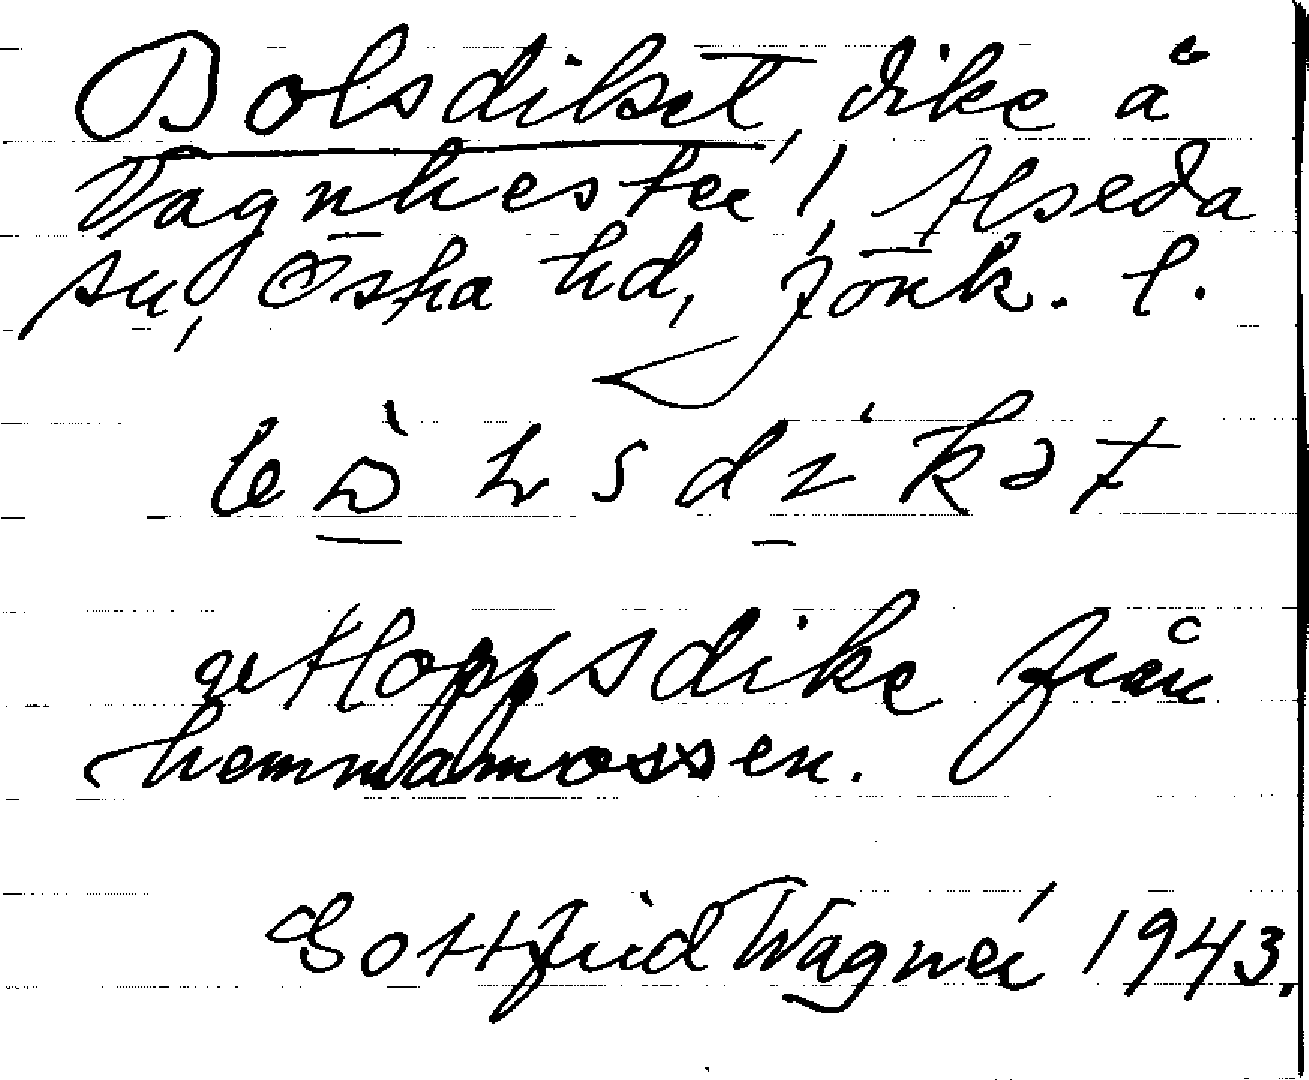 Bolsdiket, dike å
Vagnhester 1, Alseda
sn, Östra hd, Jönk. l.
avloppsdike från
hemmamossen.
Gottfrid Wagnér 1943.